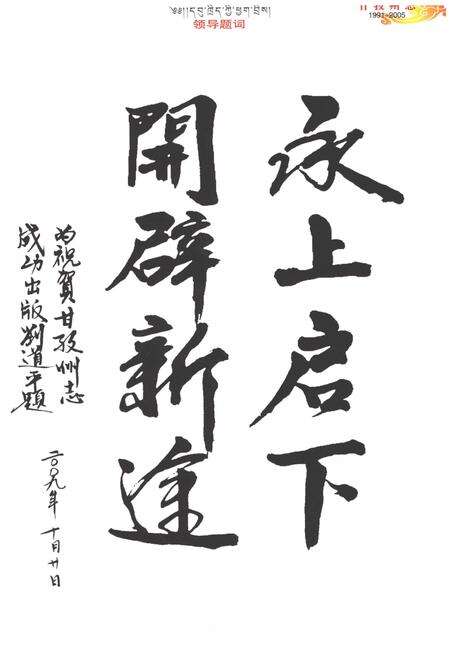 领导题词
甘孜州志
1991-2005
承上启下
開辟新途
为祝賀甘孜州志
成功出版刘道平题
二〇〇九年十月廿日